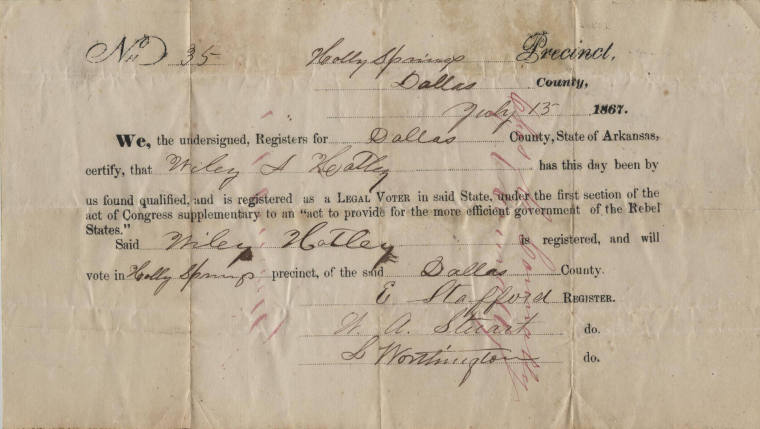 No 35 Holly Springs Precinct,
Dallas County,
July 15 1867.
We, the undersigned, Registers for Dallas County, State of Arkansas,
certify, that Wiley A Hatley has this day been by
us found qualified, and is registered as a LEGAL VOTER in said State, under the first section of the
act of Congress supplementary to an "act to provide for the more efficient government of the Rebel
States."
Said Wiley Hatley is registered, and will
vote in Holly Springs precinct, of the said Dallas County.
E Stafford REGISTER.
W. A. Stuart do.
S Worthington do.